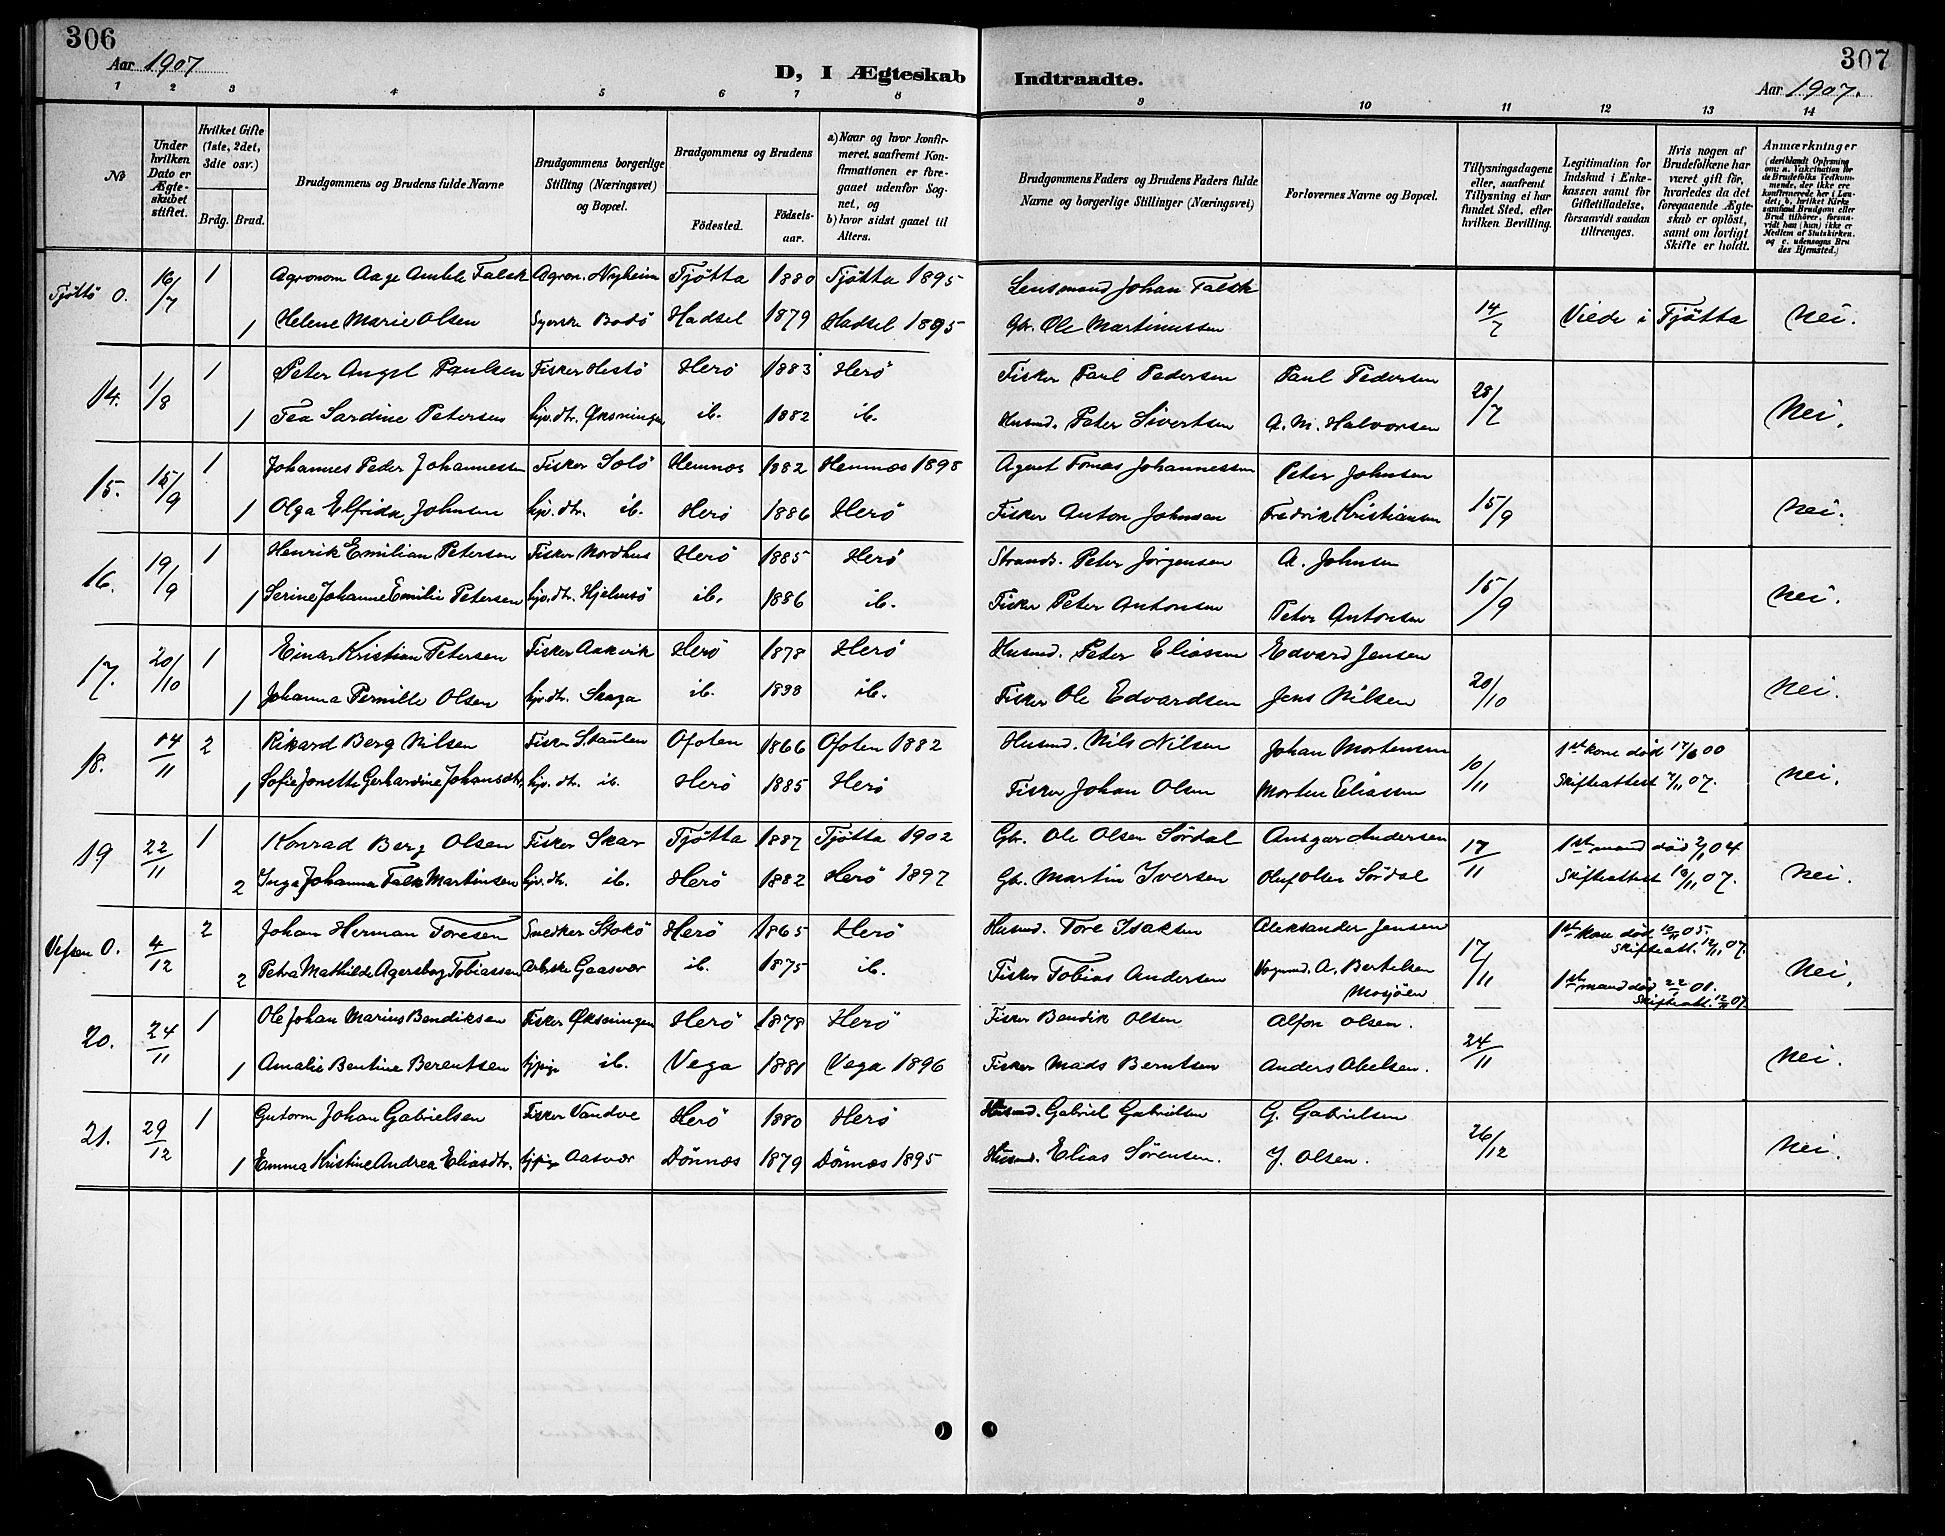 306
307
Aar 1907
D, I Ægteskab Indtraadte.
Aar 1907.
1 2 3 4 5 6 7 8 9 10 11 12 13 14
No
Under hvilken Dato er Ægteskabet stiftet.
Hvilket Gifte (1ste, 2det, 3die osv.)
Brdg. Brud.
Brudgommens og Brudens fulde Navne
Brudgommens borgerlige Stilling (Næringsvei) og Bopæl.
Brudgommens og Brudens
Födested. Födselsaar.
a) Naar og hvor konfirmeret, saafremt Konfirmationen er foregaaet udenfor Sognet, og
b) hvor sidst gaaet til Alters.
Brudgommens Faders og Brudens Faders fulde Navne og borgerlige Stillinger (Næringsvei)
Forlovernes Navne og Bopæl.
Tillysningsdagene eller, saafremt Tillysning ei har fundet Sted, efter hvilken Bevilling.
Legitimation for Indskud i Enkekassen samt for Giftetilladelse, forsaavidt saadan tiltrænges.
Hvis nogen af Brudefolkene har været gift för, hvorledes da det foregaaende Ægteskab er oplöst, samt om lovligt Skifte er holdt.
Anmærkninger
(deriblandt Oplysning om: a. Vakcination for de Brudefolks Vedkommende, der ikke ere konfirmerede her i Landet; b. hvilket Kirkesamfund Brudgom eller Brud tilhörer, forsaavidt han (hun) ikke er Medlem af Statskirken, og c. udensogns Brudes Hjemsted.)
Tjøttö O. 16/7 1 Agronom Aage Falch Agron. Nyheim Tjøtta 1880 Tjøtta 1895 Lensmand Johan Falch
1 Helene Marie Olsen Syerske Bodö Hadsel 1879 Hadsel 1895 Gbr. Ole Martinussen 14/7 Viede i Tjøtta Nei.
14. 1/8 1 Peter Angel Paulsen Fisker Hestö Herö 1883 Herö Fisker Paul Pedersen Paul Pedersen 28/7
1 Tea Sardine Petersen hjv. dtr. Øksningen ib. 1882 ib. Husmd. Peter Sivertsen A. M. Halvorsen Nei.
15. 15/9 1 Johannes Peder Johannessen Fisker Solö Hemnæs 1882 Hemnæs 1898 Agent Tomas Johannessen Peter Johnsen
1 Olga Elfrida Johnsen hjv. dtr. ib. Herö 1886 Herö Fisker Anton Johnsen Fredrik Kristiansen 15/9 Nei.
16. 19/9 1 Henrik Emilian Petersen Fisker Nordhus Herö 1885 Herö Strands. Peter Jørgensen A. Johnsen
1 Serine Johanne Emilie Petersen hjv. dtr. Hjelmsö ib. 1886 ib. Fisker Peter Antonsen Peter Antonsen 15/9 Nei.
17. 20/10 1 Einar Kristian Petersen Fisker Aakvik Herö 1878 Herö Husmd. Peter Eliassen Edvard Jensen
1 Johanna Pernille Olsen hjv. dtr. Skaga ib. ib. Fisker Ole Edvardsen Jens Nilsen 20/10 Nei.
18. 2 Rikard Berg Nilsen Fisker Ofoten 1866 Ofoten 1882 Husmd. Nils Nilsen Johan Mortensen 10/11 1ste kone død 17/6 00
1 Sofie Jonette Gerhardine Johansdtr. hjv. dtr. ib. Herö 1885 Herö Fisker Johan Olsen Morten Eliassen Skifteattest 07. Nei.
19 22/11 1 Konrad Berg Olsen Fisker Skar Tjøtta 1887 Tjøtta 1902 Gbr. Ole Olsen Sørdal Ansgar Andersen 17/11 1ste mand død 04
2 Inga Johanna Falk Martinsen hjv. dtr. ib. Herö 1882 Herö 1897 Gbr. Martin Iversen Oluf Olsen Sørdal Skifteattest 07. Nei.
Vefsen O. 4/12 2 Johan Herman Toresen Snedker Stokö Herö 1865 Herö Husmd. Tore Isaksen Aleksander Jensen 17/11 1ste kone død 05. Skifteatt. 07.
2 Petra Mathilde Agersborg Tobiassen Gaasvær ib. 1875 ib. Fisker Tobias Andersen A. Bertelsen Mosjöen 1ste mand død 01. Skifteatt. 07. Nei.
20. 24/11 1 Ole Johan Marius Bendiksen Fisker Øksningen Herö 1878 Herö Fisker Bendik Olsen Alfon Olsen. 24/11
1 Amalie Bentine Berentsen ib. Vega 1881 Vega 1896 Fisker Mads Berntsen Anders Abelsen. Nei.
21. 29/12 1 Gutorm Johan Gabrielsen Fisker Vandve Herö 1880 Herö Husmd. Gabriel Gabrielsen G. Gabrielsen 26/12
1 Emma Kristine Andrea Eliasdtr. Aasvær Dönnæs 1879 Dönnæs 1895 Husmd. Elias Sørensen. J. Olsen. Nei.